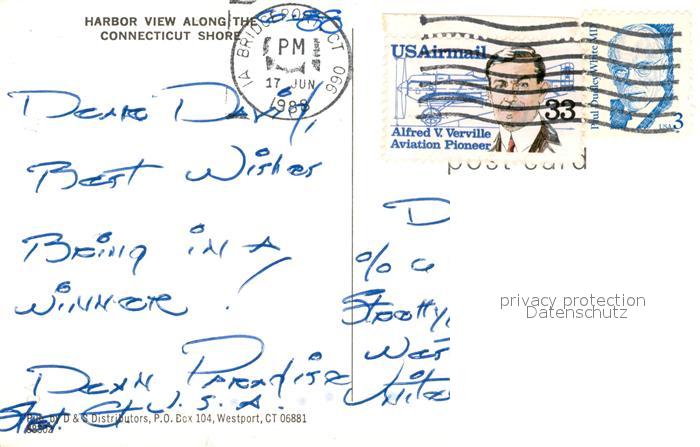 HARBOR VIEW ALONG THE
CONNECTICUT SHORE
BRIDGEPORT CT 066
PM
17 JUN
1988
USAirmail
33
Alfred V. Verville
Aviation Pioneer
Paul Dudley White MD
USA 3
post card
Dear David,
Best Wishes
Being in A
Winner!
Dean Paradise
U.S.A.
D
c/o G
West
privacy protection
Datenschutz
D & S Distributors, P.O. Box 104, Westport, CT 06881